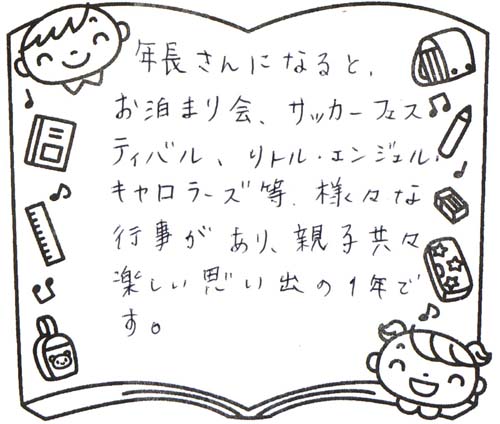 年長さんになると、
お泊まり会、サッカーフェス
ティバル、リトル・エンジェル・
キャロラーズ等、様々な
行事があり、親子共々
楽しい思い出の1年で
す。